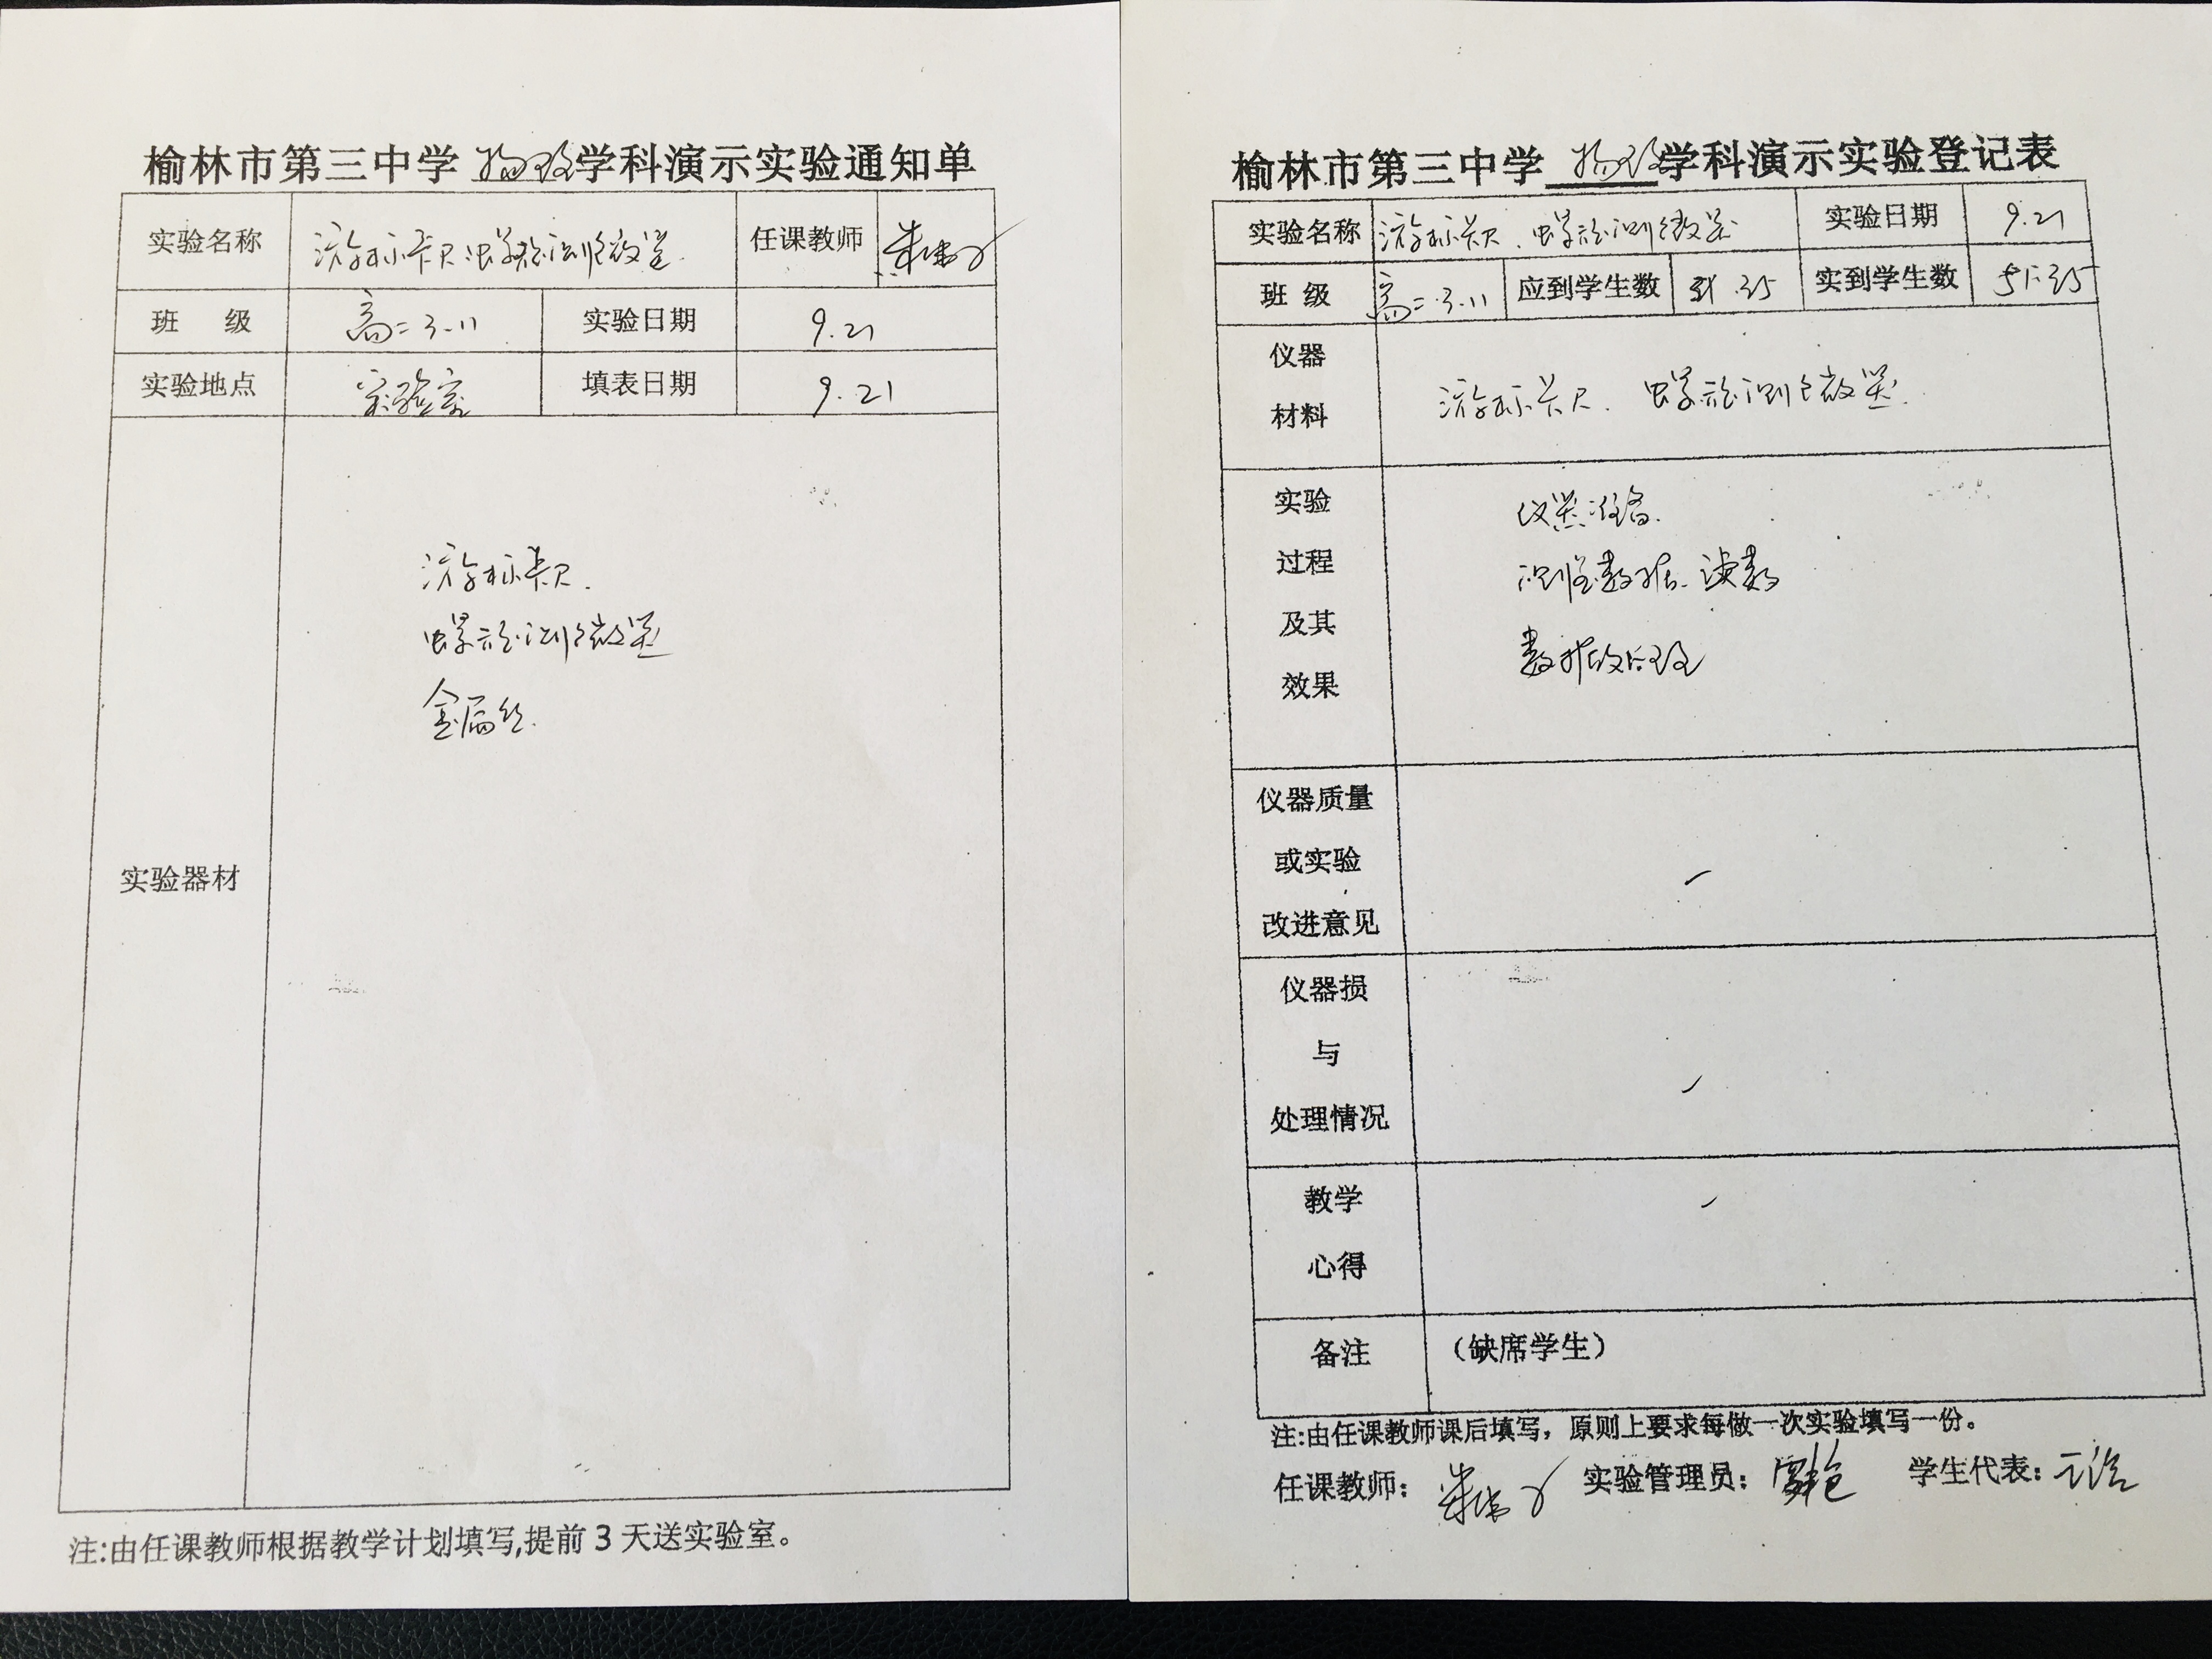 榆林市第三中学 物理 学科演示实验通知单
实验名称 游标卡尺 螺旋测微器 任课教师
班 级 高二 3.11 实验日期 9.21
实验地点 实验室 填表日期 9.21
实验器材
游标卡尺.
螺旋测微器
金属丝.
注:由任课教师根据教学计划填写,提前 3 天送实验室。
榆林市第三中学 物理 学科演示实验登记表
实验名称 游标卡尺、螺旋测微器 实验日期 9.21
班 级 高二.3.11 应到学生数 51.35 实到学生数 51.35
仪器
材料
游标卡尺. 螺旋测微器.
实验
过程
及其
效果
仪器准备.
测量数据.读数
数据处理
仪器质量
或实验
改进意见
仪器损
与
处理情况
教学
心得
备注 (缺席学生)
注:由任课教师课后填写，原则上要求每做一次实验填写一份。
任课教师: 实验管理员: 学生代表: